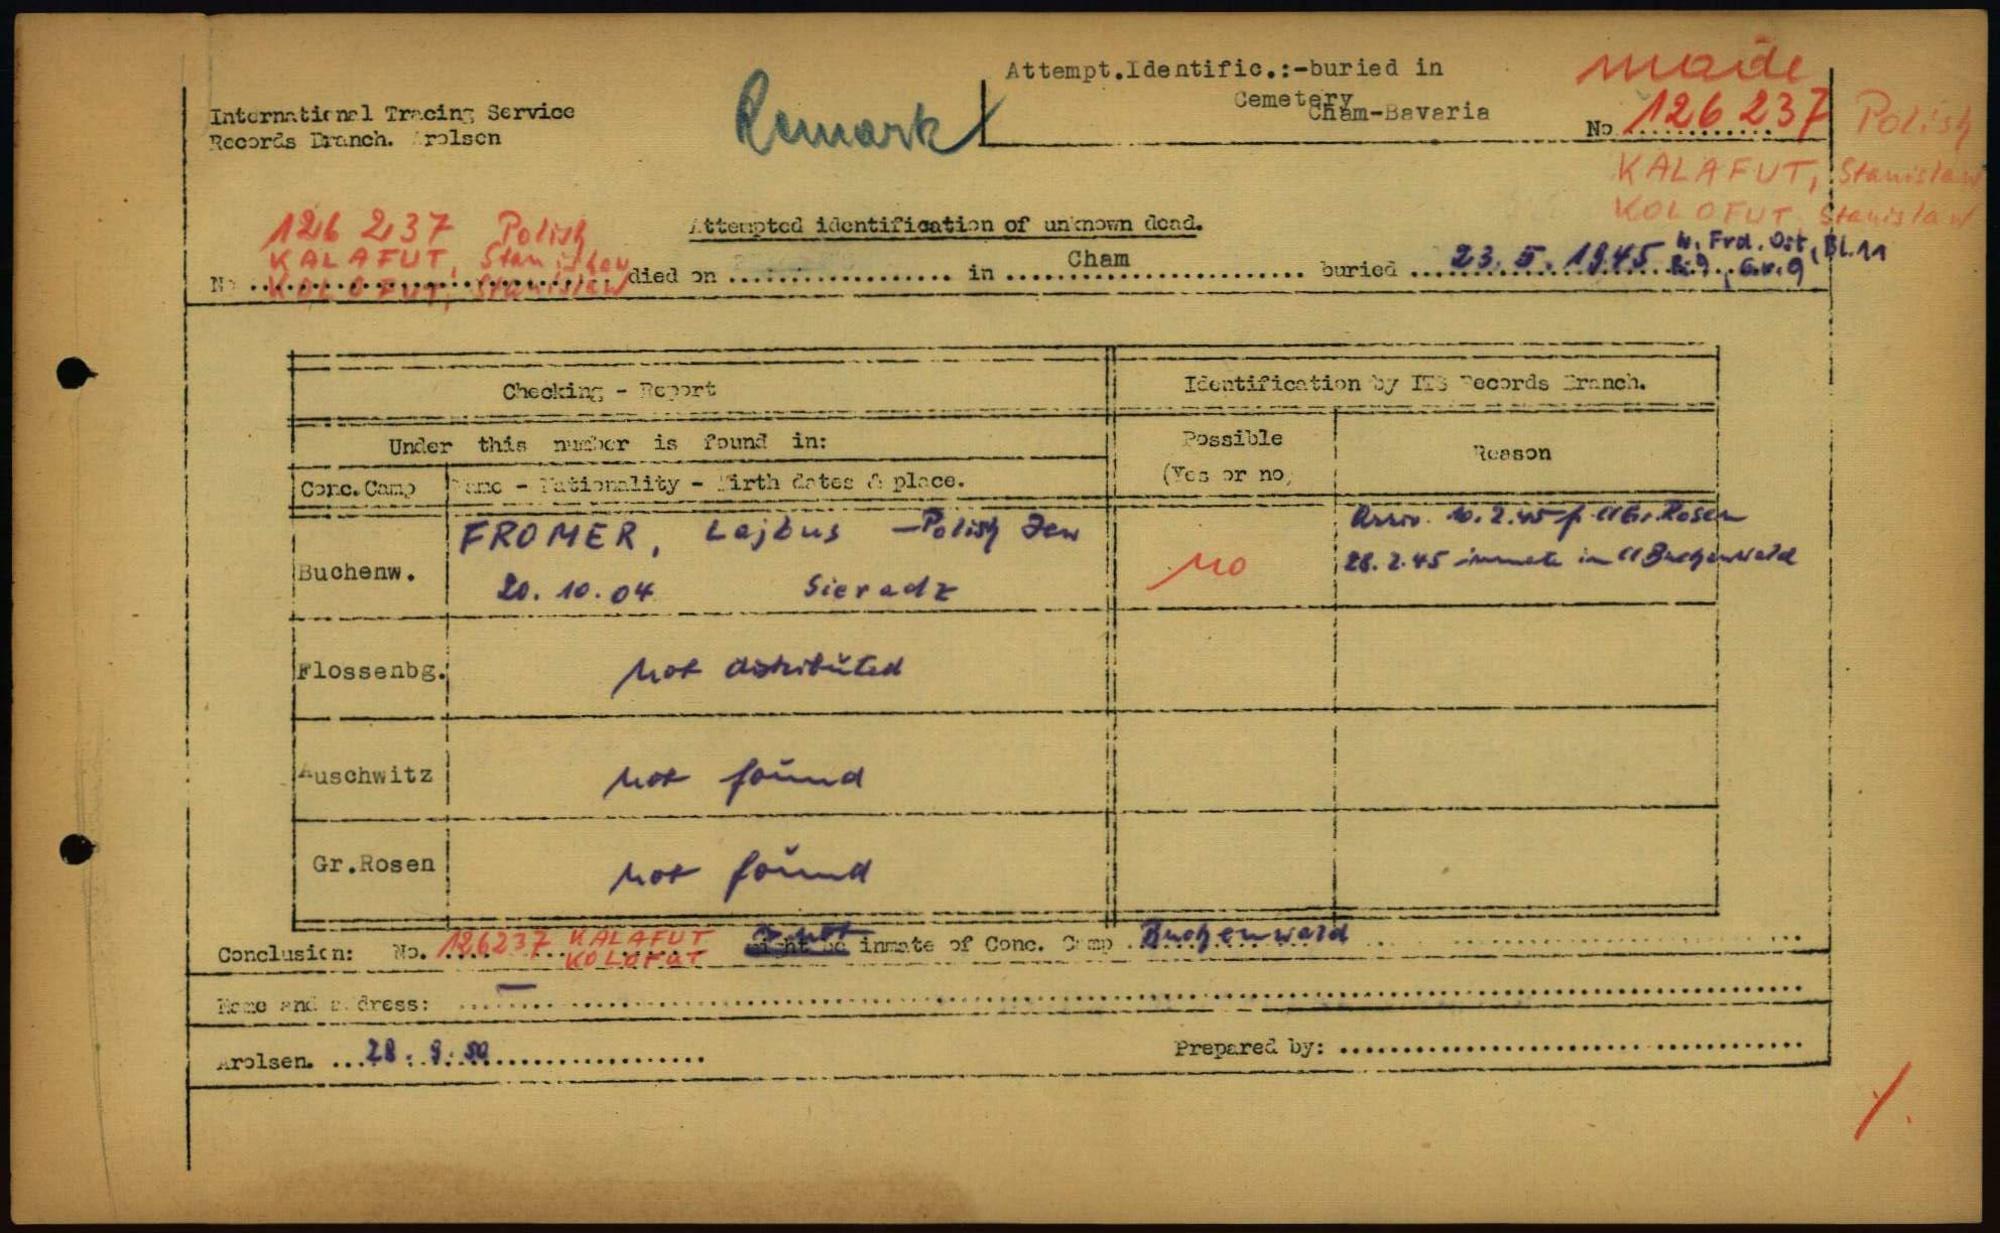 Attempt.Identific.:-buried in
Cemetery
Cham-Bavaria
made
Remark
No 126 237 Polish
International Tracing Service
Records Branch. Arolsen
KALAFUT, Stanislaw
KOLOFUT, Stanislaw
Attempted identification of unknown dead.
126 237 Polish
KALAFUT, Stanislaw
No KOLOFUT, Stanislaw died on .................. in ...... Cham ...... buried ... 23. 5. 1945 W. Frd. Ost, Bl. 11
R. 9, Gr. 9
Checking - Report
Identification by ITS Records Branch.
Under this number is found in:
Possible
(Yes or no)
Reason
Conc.Camp
Name - Nationality - Birth dates & place.
Buchenw.
FROMER, Lajbus - Polish Jew
20. 10. 04 Sieradz
no
Arriv. 10. 2. 45 f. CC Gr. Rosen
28. 2. 45 inmate in CC Buchenwald
Flossenbg.
not distributed
Auschwitz
not found
Gr.Rosen
not found
Conclusion: No. 126237 KALAFUT
KOLOFUT
not
might be inmate of Conc. Camp Buchenwald
Name and address: —
Arolsen. ... 28. 9. 50 ..................
Prepared by: ..................